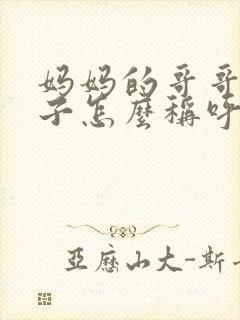 妈妈的哥哥
子怎麼稱呼
亞歷山大-斯